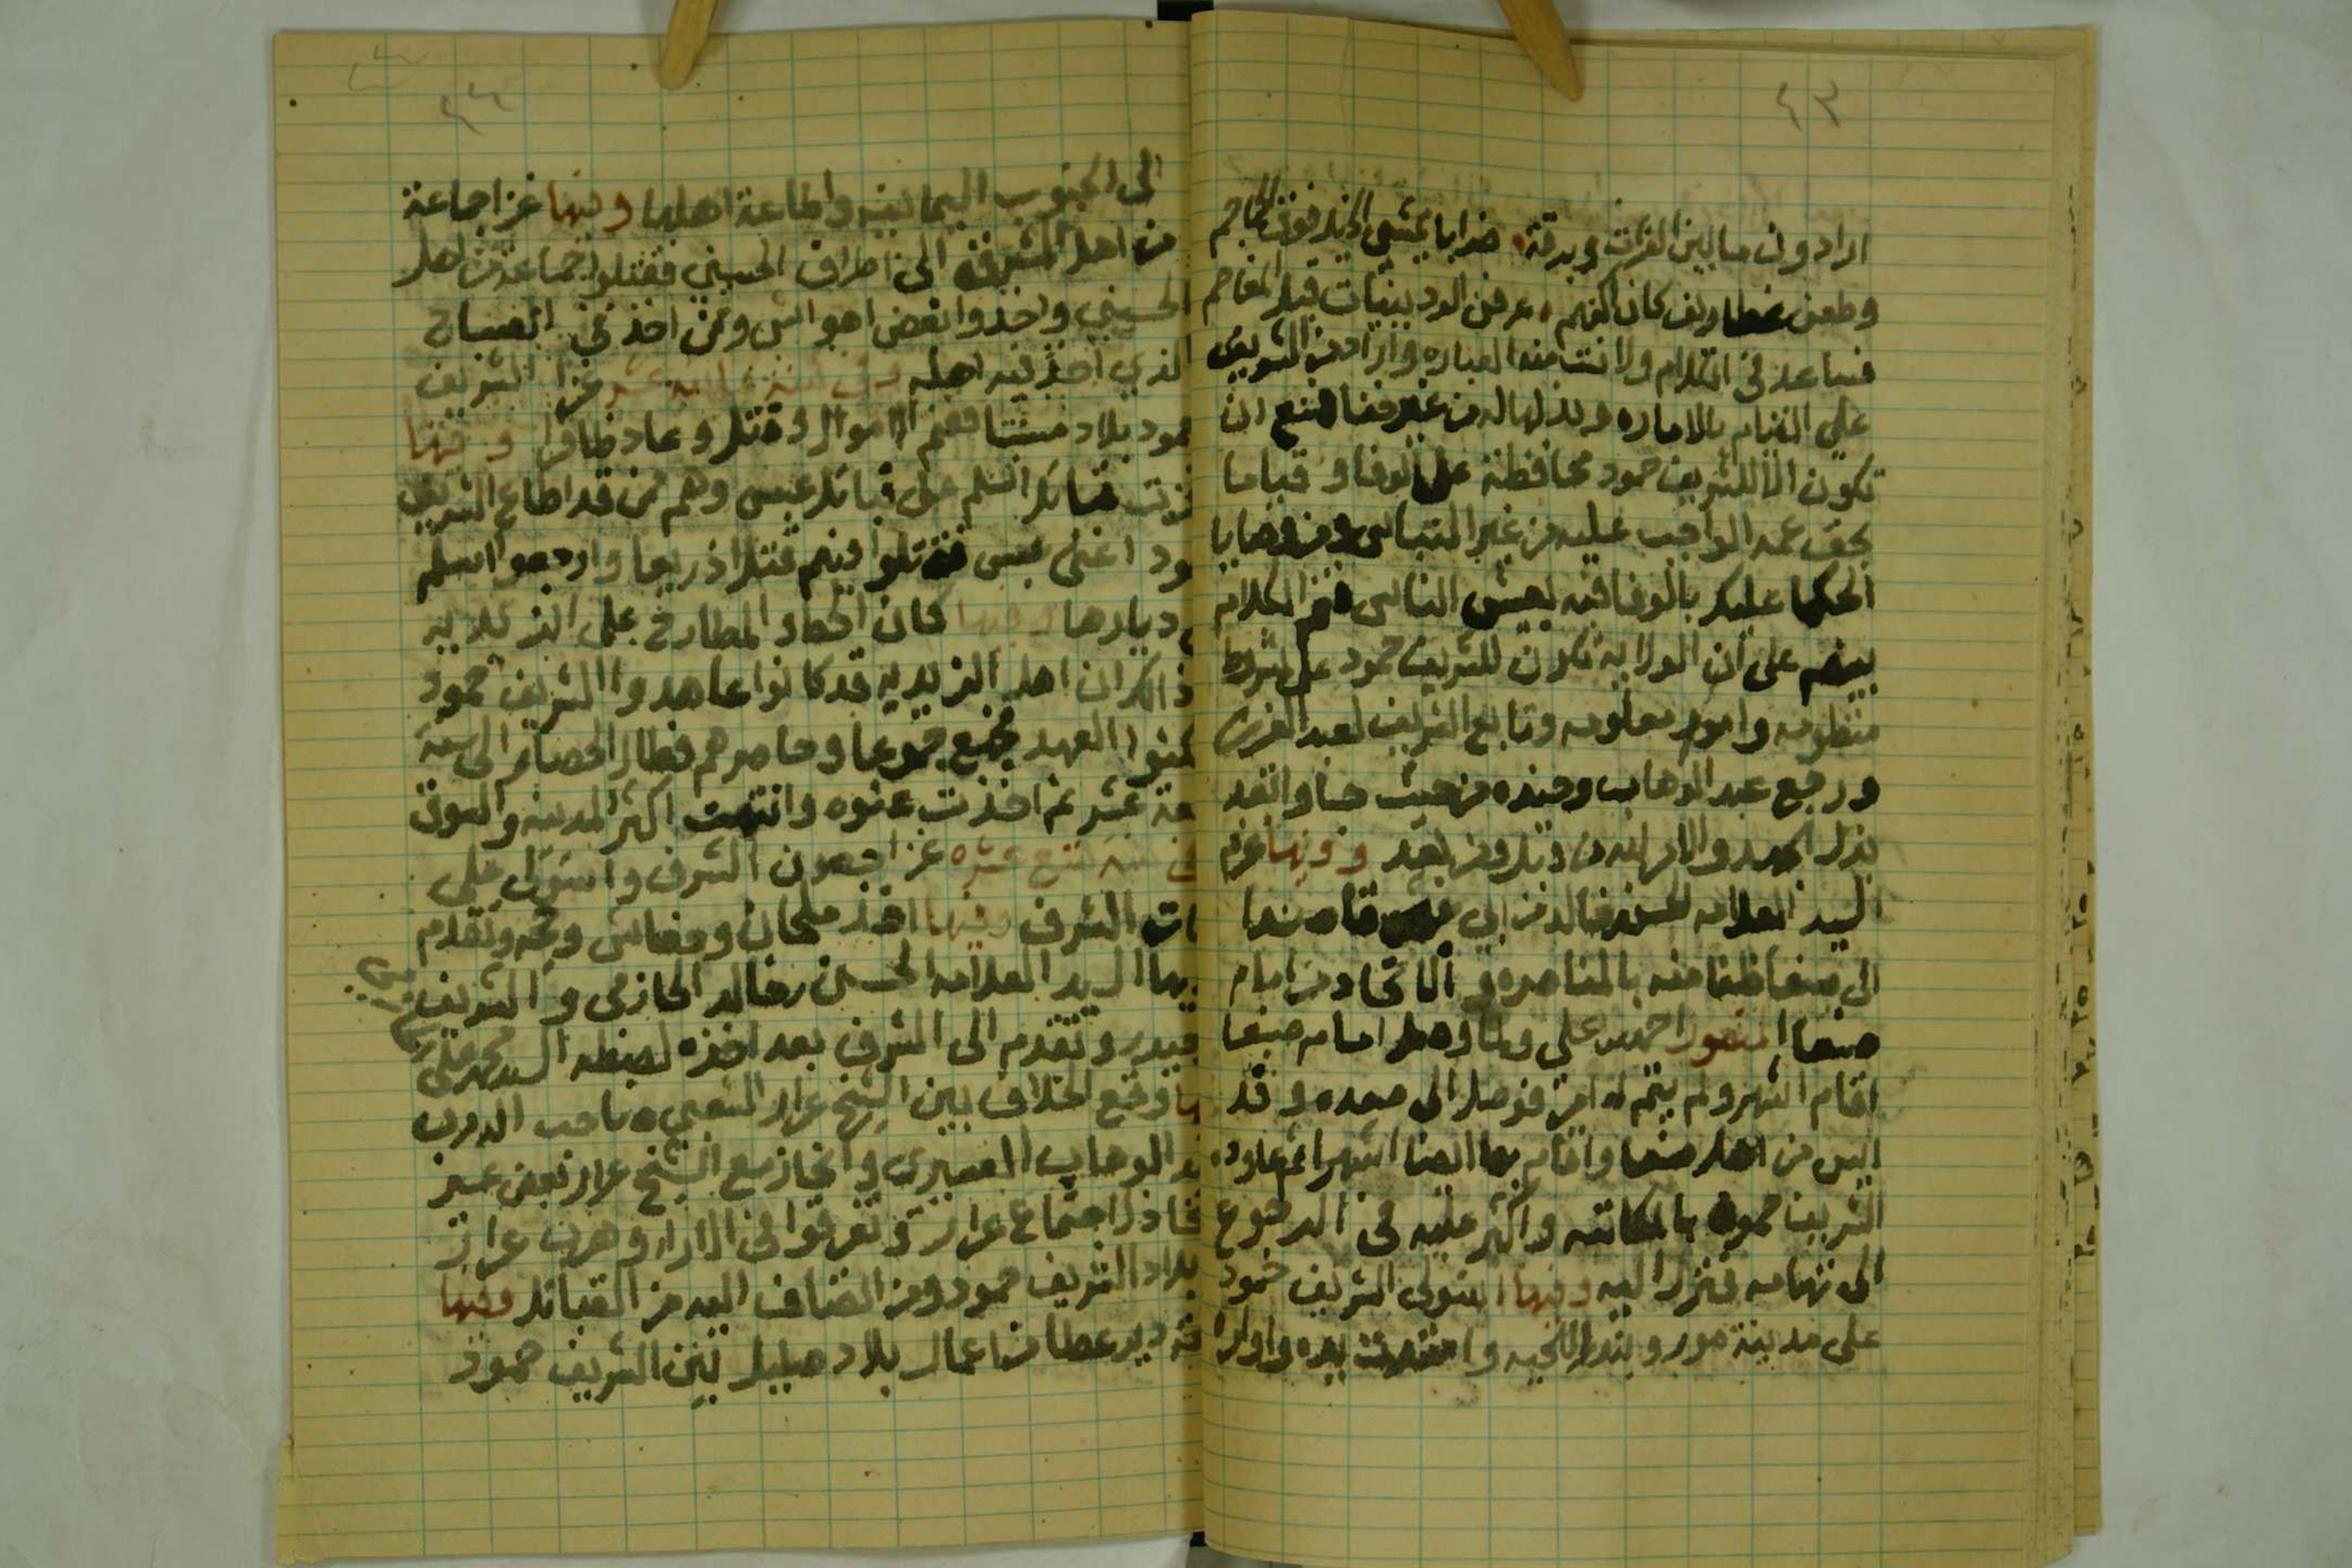 ٤٣
ارادون ما بين الفرات وبرقة ضرابا يمشي الخيل فوق الجماجم
وطعن غطاريف كان اكفهم عرفن الردينيات قبل المعاصم
فساعد في الكلام ولانت منه العباره واراد من الشريف
على القيام بالاماره وبذلها له من غير فامتنع ان
تكون الا للشريف حمود محافظة على الوفا و قياما
بحق عمه الواجب عليه من غير التباس ومن وصايا
الحكما عليك بالوفا فبه يعيش الناس فتم الكلام
بينهم على ان الولايه تكون للشريف حمود على شروط
منظومه وامور معلومه وتابع الشريف لعبد العزيز
ورجع عبد الوهاب وجنده من حيث جا وانفذ
بذل الجهد والامر لله من قبل ومن بعد وفيها عزم
السيد العلامه الحسن خالد من ابي قاصدا
الى صنعا ظنا منه بالمناصره والاتحاد من امام
صنعا المنصور احمد بن علي ولما وصل امام صنعا
اقام اشهر ولم يتم له امر فوصل الى صعده وقد
ايس من اهل صنعا واقام بها ايضا اشهرا ثم عاوده
الشريف حمود بالمكاتبه واكثر عليه في الرجوع
الى تهامه فنزل اليه وفيها استولى الشريف حمود
على مدينة مور وبندر اللحيه وامتدت يده واوامره
٤٤
الى الجنوب اليمانيه واطاعة اهلها وفيها غزا جماعة
من اهل الشرفه الى اطراف الحسيني فقتلوا جماعة من اهل
الحسيني واخذوا بعض المواشي ومن اخذ في الصباح
الذي اخذ فيه اهله وفي سنة ثمانيه عشر غزا الشريف
حمود بلاد فغنم الاموال وقتل وعاد ظافرا وفيها
غزت قبائل اسلم على قبائل عبس وهم من قد اطاع الشريف
حمود اعني عبس فقتلوا فيهم قتلا ذريعا وارجعوا اسلم
في ديارها وفيها كان الحصار المطارح على الزيديه
وذالك ان اهل الزيديه قد كانوا عاهدوا الشريف حمود
العهد فجمع جموعا وحاصرهم فطال الحصار الى سنة
تسعة عشر ثم اخذت عنوه وانتهت اكثر المدينه والسوق
في سنة تسع عشره غزا حصون الشرف واستولى على
الشرف وفيها اخذ ملحان وحفاش وتقدم
فيها السيد العلامه الحسن بن خالد الحازمي والشريف
حيدر وتقدم الى الشرف بعد اخذه لضبطه السيد محمد علي
وقع الخلاف بين الشيخ عرار الشعبي صاحب الدرب
عبد الوهاب العسيري وانحاز مع الشيخ عرار بعض عسير
اجتماع عرار وتفرقوا في الاراء وهرب عرار
بلاد الشريف حمود ومن انضاف اليه من القبائل وفيها
دير عطا من اعمال بلاد صليل بين الشريف حمود